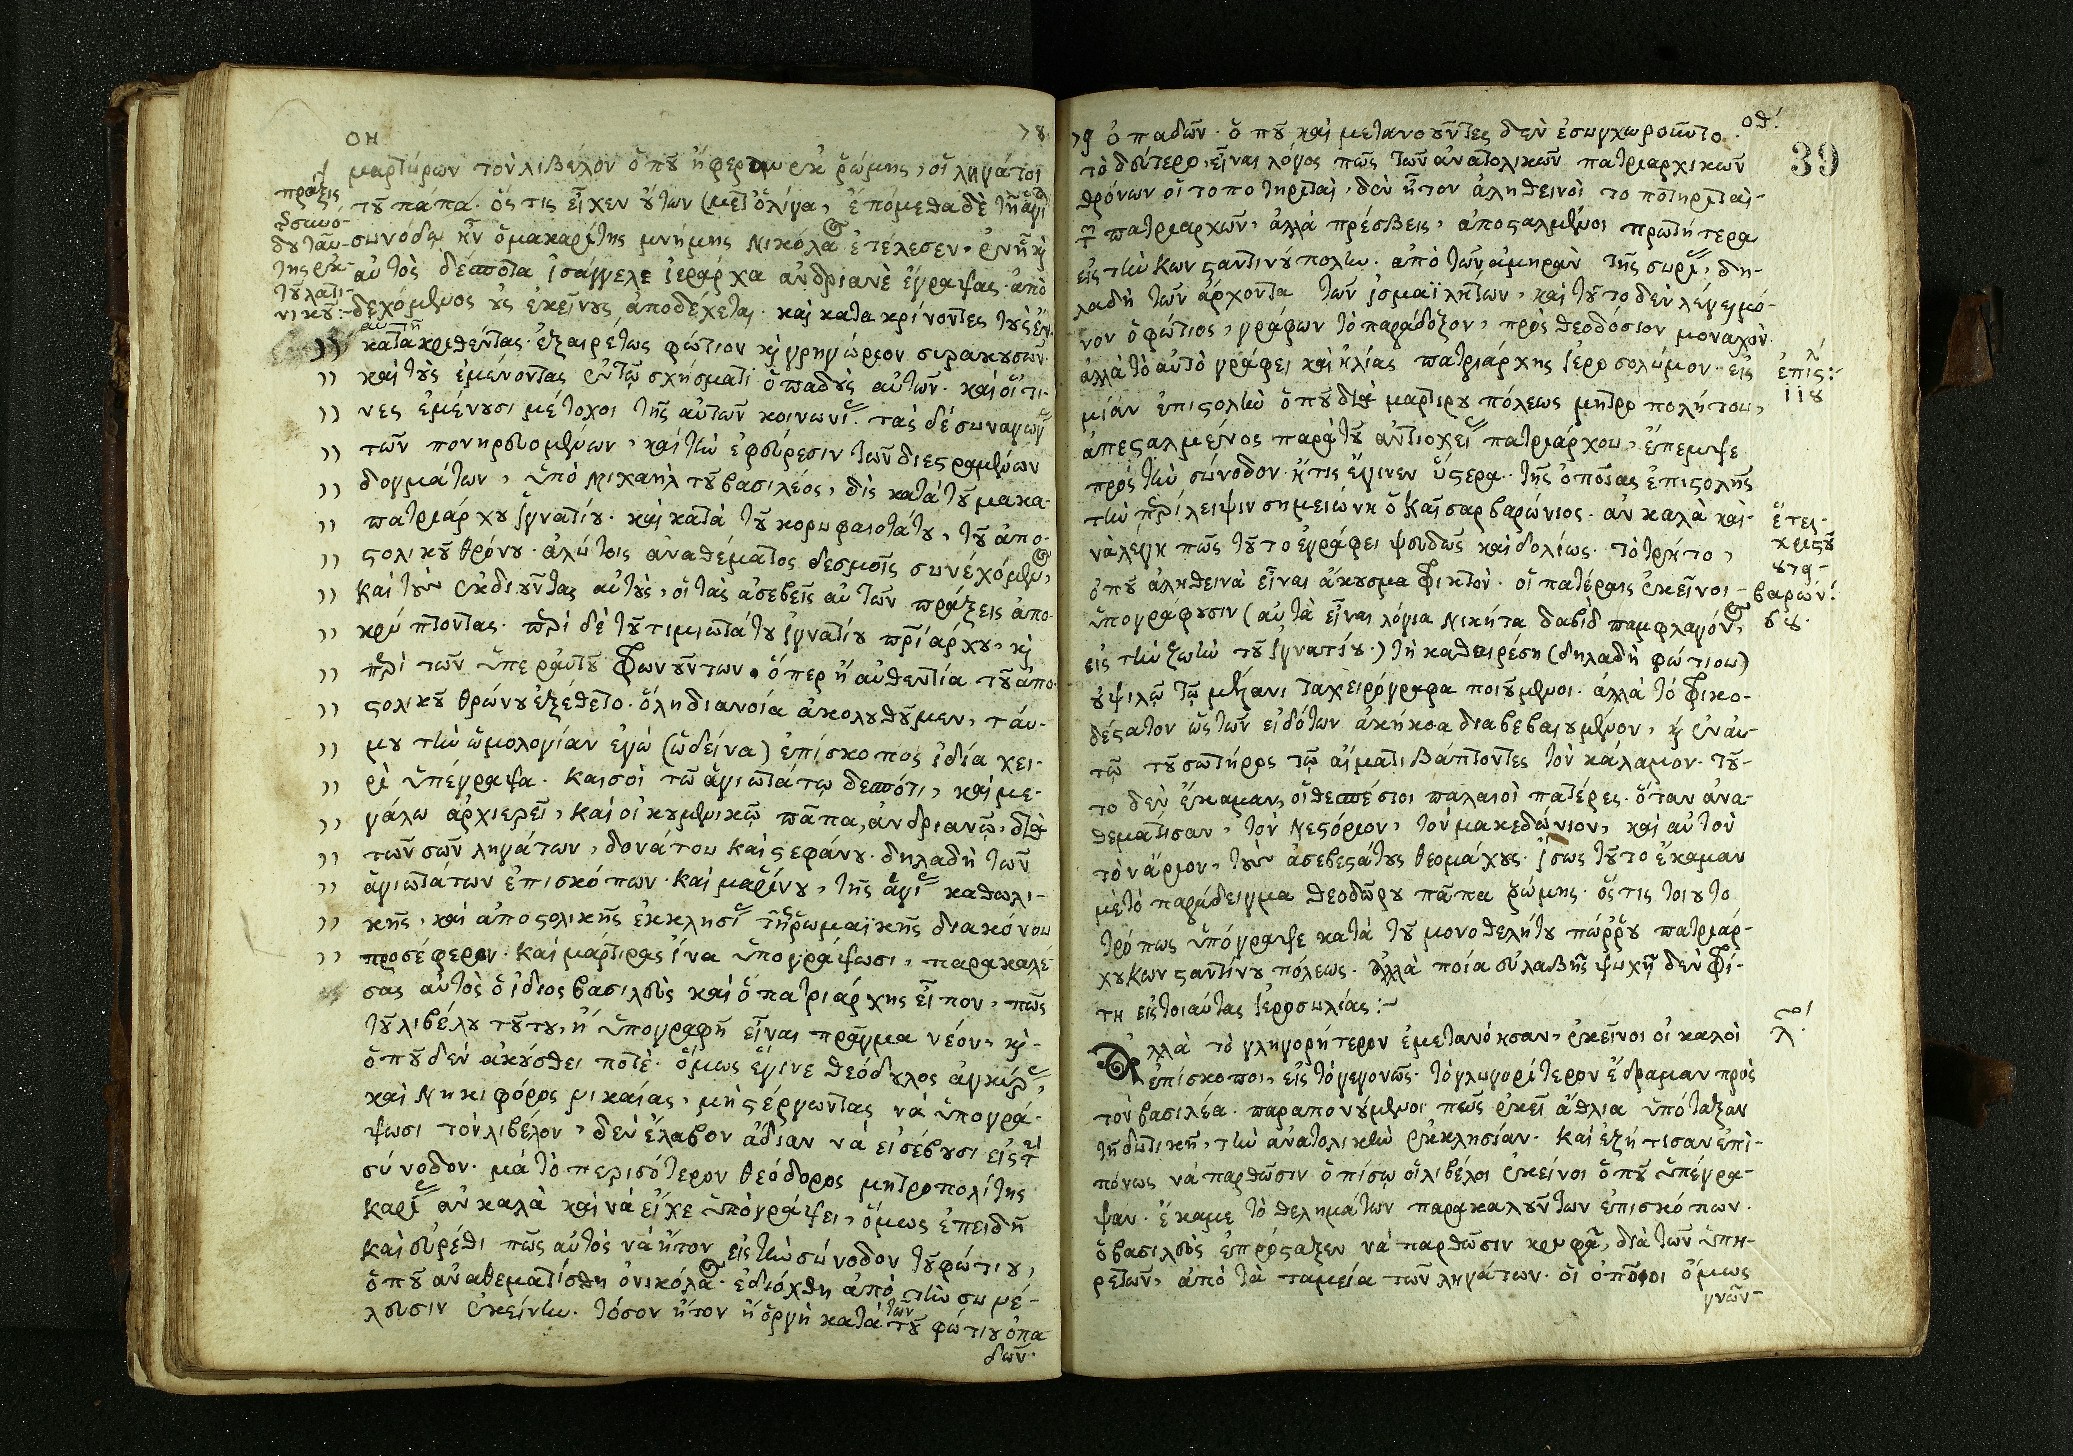 οη
78
μαρτύρων τὸν λιβέλον ὁποῦ ἤφεραν ἐκ ῥώμης, οἱ ληγάτοι
τοῦ πάπα. ὅς τις εἶχεν οὕτων (μετ' ὀλίγα, ἑπόμεθα δὲ τῇ ἁγί
συνόδῳ ἣν ὁ μακαρίτης μνήμης Νικόλαος ἐτέλεσεν, ἐν ᾗ κὶ
αὐτὸς δέσποτα ἰσάγγελε ἱεράρχα ἀνδριανὲ ἔγραψας. ἀπὸ
δεχόμενος οὓς ἐκείνους ἀποδέχεται. καὶ κατακρίνοντες τοὺς ἐν
αὐτῇ
κατακριθέντας. ἐξαιρέτως φώτιον κὶ γρηγώρεον συρακουσῶν
καὶ τοὺς ἐμένοντας ἐν τῷ σχήσματι ὀπαδοὺς αὐτῶν. καὶ οἵτι-
νες ἐμένουσι μέτοχοι τῆς αὐτῶν κοινωνί. τὰς δὲ συναγωγ
τῶν πονηρευομένων, καὶ τὴν ἐφεύρεσιν τῶν διεστραμένων
δογμάτων, ὑπὸ Μιχαὴλ τοῦ βασιλέος, δὶς κατὰ τοῦ μακα-
πατριάρχου ἰγνατίου. καὶ κατὰ τοῦ κορυφαιοτάτου, τοῦ ἀπο-
στολικοῦ θρόνου. ἀλύτοις ἀναθέματος δεσμοῖς συνέχόμεν,
καὶ τοὺς ἐκδιοῦντας αὐτοὺς, οἳ τὰς ἀσεβεῖς αὐτῶν πράξεις ἀπο-
κρύπτοντας. περὶ δὲ τοῦ τιμιωτάτου ἰγνατίου πριάρχου, κὶ
περὶ τῶν ὑπὲρ αὐτοῦ φρονούντων. ὅπερ ἡ αὐθεντία τοῦ ἀπο-
στολικοῦ θρώνου ἐξέθετο. ὅλη διανοία ἀκολυθοῦμεν, τάυ-
μου τὴν ὡμολογίαν ἐγὼ (ὡδείνα) ἐπίσκοπος ἰδία χει-
ρὶ ὑπέγραψα. καὶ σοὶ τῶ ἁγιωτάτῳ δεσπότι, καὶ με-
γάλω ἀρχιερεῖ, καὶ οἰκουμενικῷ πάπα, ἀνδριανῷ, διὰ
τῶν σῶν ληγάτων, δονάτου καὶ στεφάνου. δηλαδὴ τῶν
ἁγιωτάτων ἐπισκόπων. καὶ μαρίνου, τῆς ἁγί καθωλι-
κῆς, καὶ ἀποστολικῆς ἐκκλησί τῆς ῥωμαϊκῆς διακόνου
προσέφερον. καὶ μάρτιρας ἵνα ὑπογράψωσι, παρακαλέ
σας αὐτὸς ὁ ἴδιος βασιλεὺς καὶ ὁ πατριάρχης εἶπον, πῶς
τοῦ λιβέλου τούτου, ἡ ὑπογραφῆ εἶναι πρᾶγμα νέον, κὶ-
ὁποῦ δὲν ἀκύσθει ποτὲ. ὅμως ἔγινε θεόδυλος ἀγκύρ,
καὶ Νηκιφόρος νικαίας, μὴ στέργωντας νὰ ὑπογρά-
ψωσι τὸν λιβέλον, δὲν ἔλαβον ἄδιαν νὰ εἰσέβουσι εἰς τὴν
σύνοδον. μὰ τὸ περισότερον θεόδορος μητροπολίτης
καρί ἀν καλὰ καὶ νὰ εἶχε ὑπὸγράψει, ὅμως ἐπειδῆ
καὶ εὑρέθι πῶς αὐτὸς νὰ ἦτον εἰς τὴν σύνοδον τοῦ φώτιου,
ὁποῦ ἀναθεματίσθη ὁ νικόλαος. ἐδιόχθη ἀπὸ τὴν συνέ-
λευσιν ἐκείνην. τόσον ἦτον ἡ ὀργὴ κατὰ τῶν τοῦ φώτιου ὀπα
δῶν.
πράξις
δευτάυ-
της ἐκ
τοῦ λατι-
νικοῦ:
οθ΄
39
79 ὀπαδῶν. ὁποῦ καὶ μετανοῦντες δὲν ἐσυγχωροῦντο.
τὸ δεύτερο, εἶναι λόγος πῶς τῶν ἀνατολικῶν πατριαρχικῶν
θρόνων οἱ τοποτηριταὶ, δὲν ἦτον ἀληθεινοὶ τοποτηριταὶ-
τῶν πατριαρχῶν, ἀλλὰ πρέσβεις, ἀποσταλμένοι πρωτήτερα
εἰς τὴν Κωνσταντινούπολιν. ἀπὸ τῶν ἀμηρᾶν τῆς συρί, δη-
λαδὴ τῶν ἄρχοντα τῶν ἰσμαϊλητῶν, καὶ τοῦτο δὲν λέγει μό-
νον ὁ φώτιος, γράφων τὸ παράδοξον, πρὸς θεοδόσιον μοναχὸν.
ἀλλὰ τὸ αὐτὸ γράφει καὶ ἠλίας πατριάρχης ἱεροσολύμον. εἰς
μίαν ἐπιστολὴν ὁποῦ διὰ μαρτιρουπόλεως μητροπολήτου,
ἀπεσταλμένος παρὰ τοῦ ἀντιοχεί πατριάρχου, ἔπεμψε
πρὸς τὴν σύνοδον. ἥτις ἔγινεν ὕστερα. τῆς ὁποίας ἐπιστολῆς
τὴν περίλειψιν σημειώνη ὁ Καίσαρ βαρώνιος. ἀν καλὰ καὶ-
νὰ λέγη πῶς τοῦτο ἐγράφει ψευδῶς καὶ δολίως. τὸ τρήτο,
ὁποῦ ἀληθεινὰ εἶναι ἄκυσμα φρικτὸν. οἱ πατέραις ἐκεῖνοι-
ὑπογράφυσιν (αὐτὰ εἶναι λόγια Νικήτα δαβὶδ παμφλαγόνος,
εἰς τὴν ζωὴν τοῦ ἰγνατίου.) τὴ καθαιρέση (δηλαδὴ φώτιου)
οὐ ψιλῷ τῷ μέλανι τὰ χειρόγραφα ποιούμενοι. ἀλλὰ τὸ φρικο-
δέστατον ὡς τῶν εἰδότων ἀκήκοα διαβεβαιουμένον, κὶ ἐν αυ-
τῷ τοῦ σωτήρος τῷ αἵματι βάπτοντες τὸν κάλαμον. τοῦ-
το δὲν ἔκαμαν, οἱ θεσπέσιοι παλαιοὶ πατέρες. ὅταν ἀνα-
θεμάτισαν, τὸν Νεστόριον, τὸν μακεδώνιον, καὶ αὐτὸν
τὸν ἄριον, τοὺς ἀσεβεστάτους θεομάχους. ἴσως τοῦτο ἔκαμαν
μὲ τὸ παράδειγμα θεοδώρου πάπα ῥώμης. ὅστις τοιουτο
τρόπως ὑπόγραψε κατὰ τοῦ μονοθελήτου πύρρου πατριάρ-
χου Κωνσταντινουπόλεως. ἀλλὰ ποία εὐλαβὴς ψυχῆ δὲν φρί-
τη εἰς τοιαύτας ἱεροσυλίας:-
Ἀλλὰ τὸ γληγορήτερον ἐμετανόησαν, ἐκεῖνοι οἱ καλοὶ
ἐπίσκοποι, εἰς τὸ γεγονῶς. τὸ γλυγορίτερον ἔδραμαν πρὸς
τὸν βασιλέα. παραπονούμενοι πῶς ἐκεῖ ἄθλια ὑπόταξαν
τῇ δυτικῇ, τὴν ἀνατολικὴν ἐκκλησίαν. καὶ ἐζήτισαν ἐπὶ-
πόνως νὰ παρθῶσιν ὀπίσῳ οἱ λιβέλοι ἐκείνοι ὁποῦ ὑπέγρα-
ψαν. ἔκαμε τὸ θελημάτων παρακαλούντων ἐπισκόπων.
ὁ βασιλεὺς ἐπρόσταξεν νὰ παρθῶσιν κρυφᾶ, διὰ τῶν ὑπη-
ρετῶν, ἀπὸ τὰ ταμεία τῶν ληγάτων. οἱ ὁποῖοι ὅμως
γνῶν-
ἐπισ:
118
ἔτει-
χριστοῦ
βαρών:
λ΄